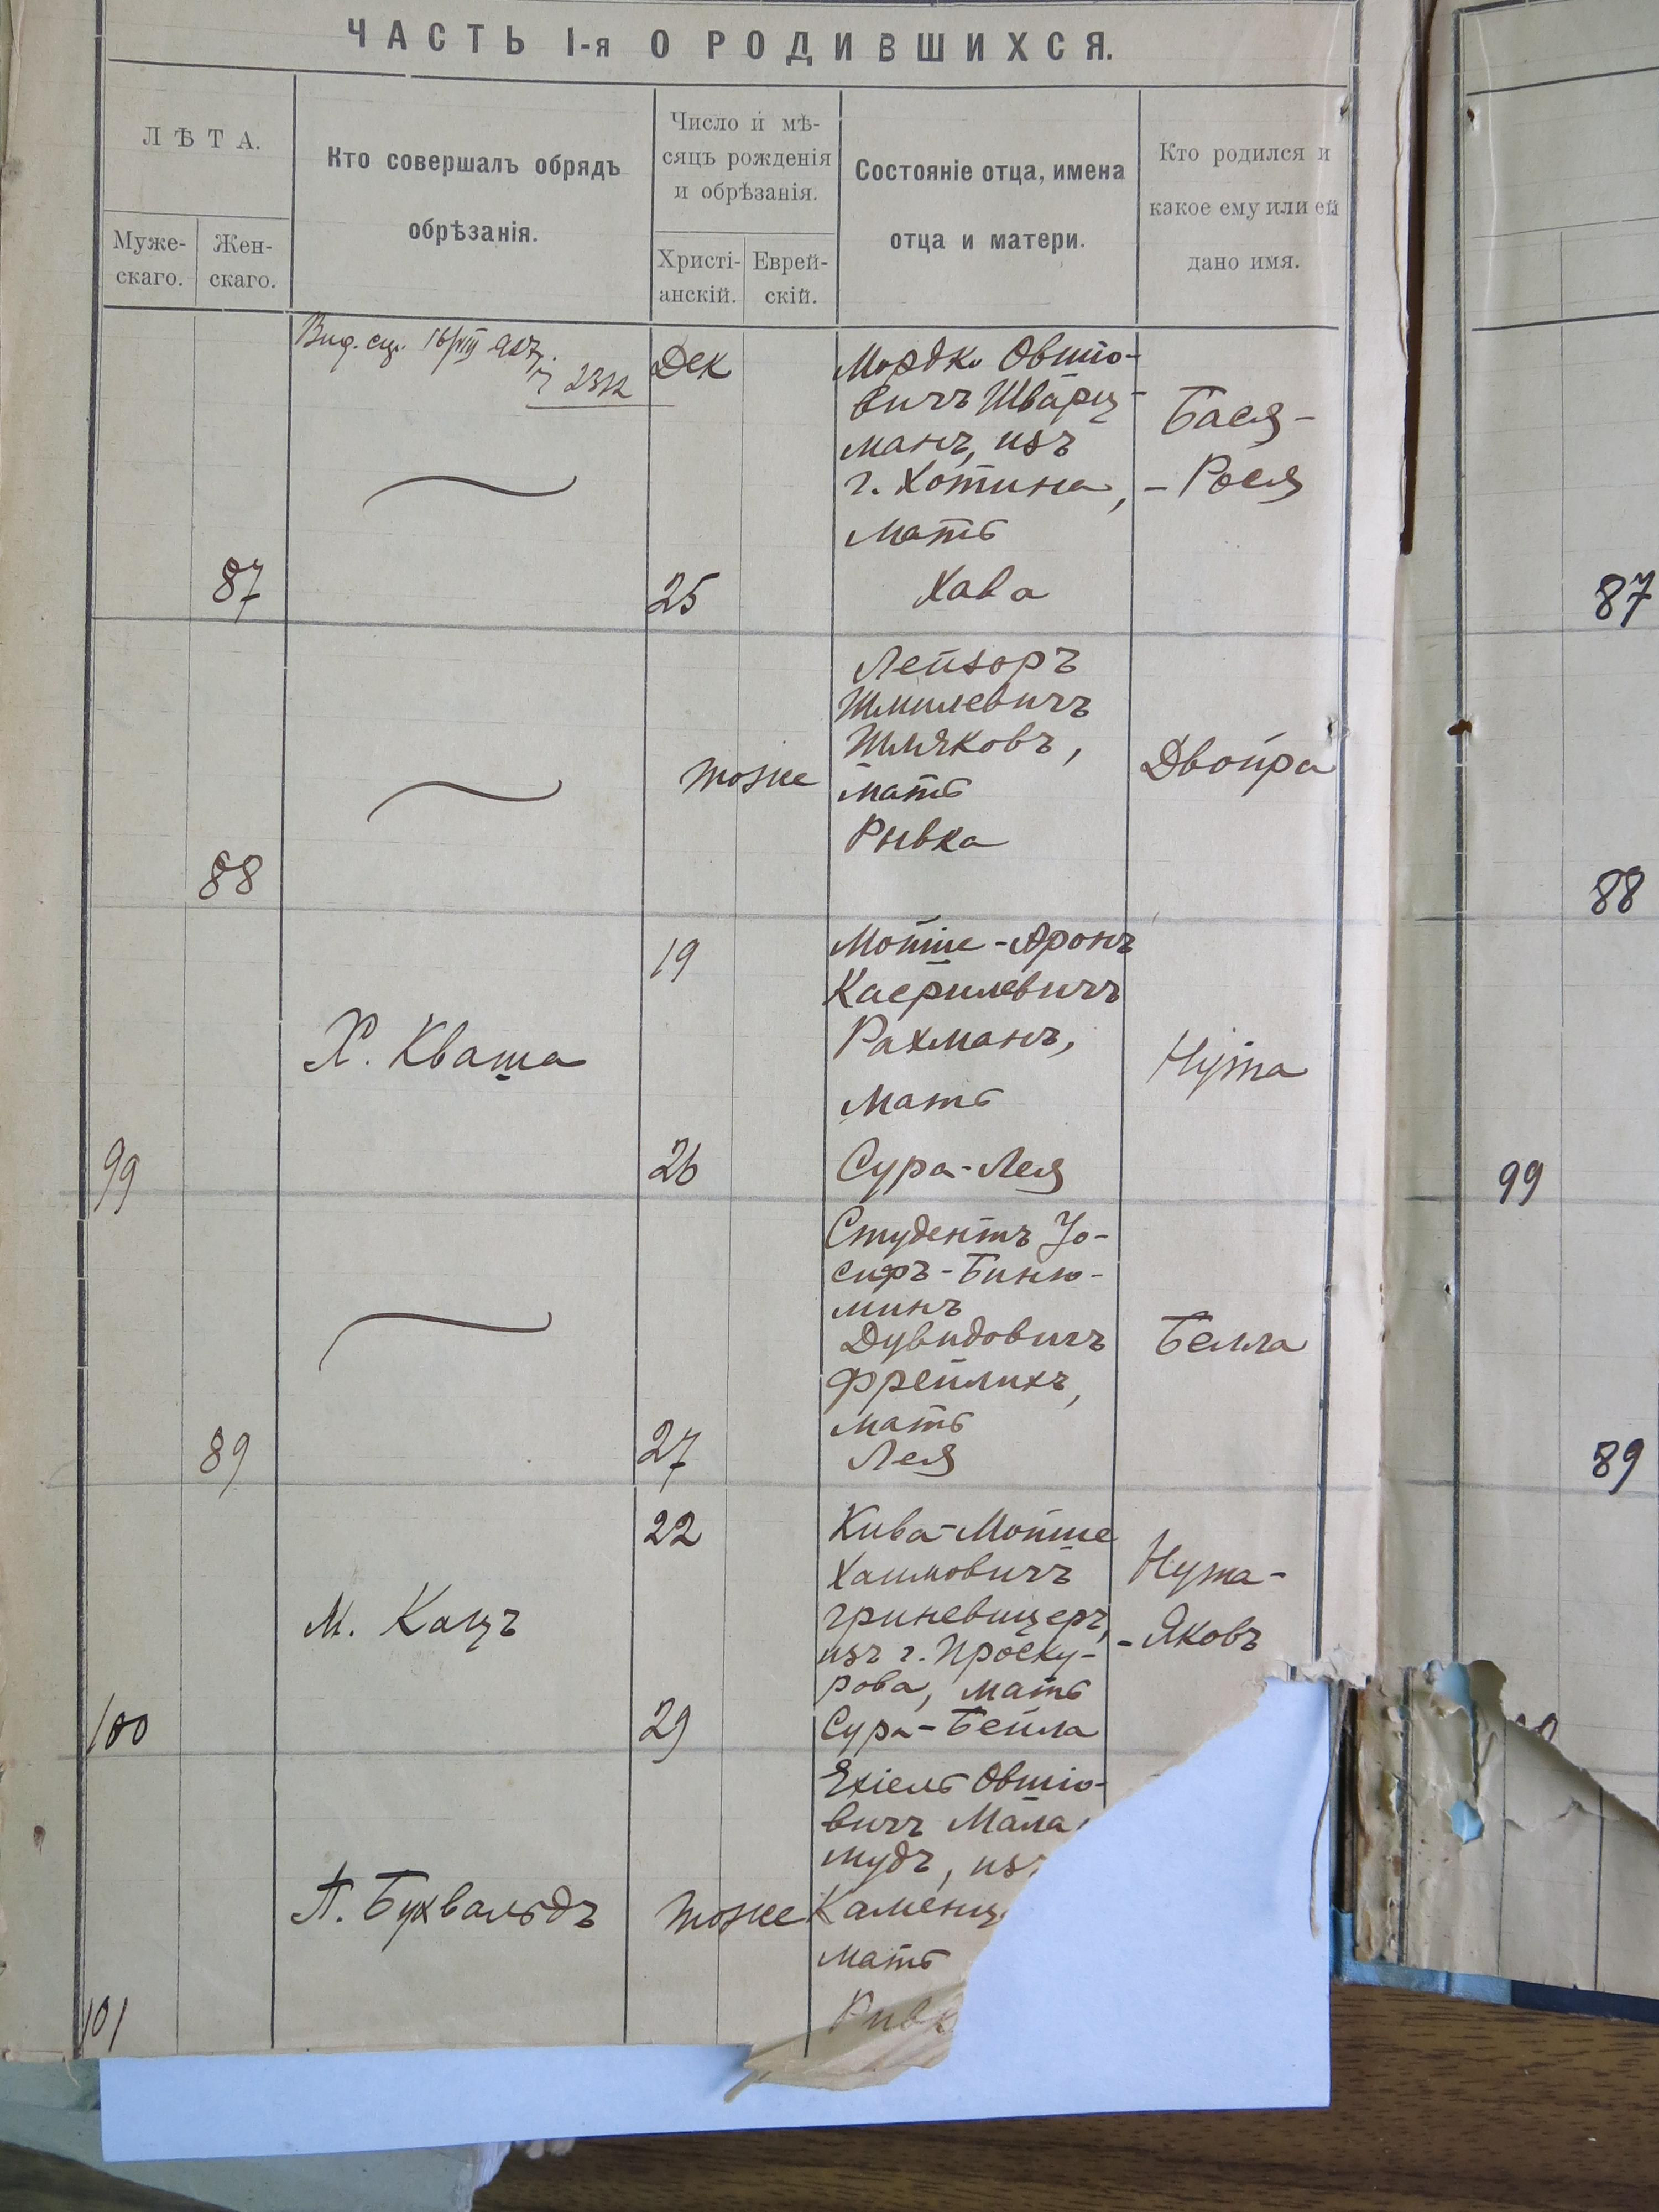 ЧАСТЬ I-я О РОДИВШИХСЯ.
ЛѢТА.
Муже-
скаго.
Жен-
скаго.
Кто совершалъ обрядъ
обрѣзанія.
Число и мѣ-
сяцъ рожденія
и обрѣзанія.
Христі-
анскій.
Еврей-
скій.
Состояніе отца, имена
отца и матери.
Кто родился и
какое ему или ей
дано имя.
87
Дек
25
Мордко Овшіо-
вичъ Шварц-
манъ, изъ
г. Хотина,
мать
Хава
Бася-
-Рося
87
88
тоже
Лейзоръ
Шмилевичъ
мать
Рывка
Двойра
88
99
Х. Кваша
19
26
Мойше-Аронъ
Касрилевичъ
Рахманъ,
мать
Сура-Лея
Нута
99
89
27
Студентъ Іо-
сифъ-Биню-
минъ
Дувидовичъ
Фрейлихъ,
мать
Лея
Белла
89
100
М. Кацъ
22
29
Кива-Мойше
Хаимовичъ
Гриневицеръ,
изъ г. Проску-
рова, мать
Сура-Бейла
Нута-
-Яковъ
101
П. Бухвальдъ
тоже
Ехіель Овшіо-
вичъ Мала
мудъ, изъ
Каменц
мать
Ривк